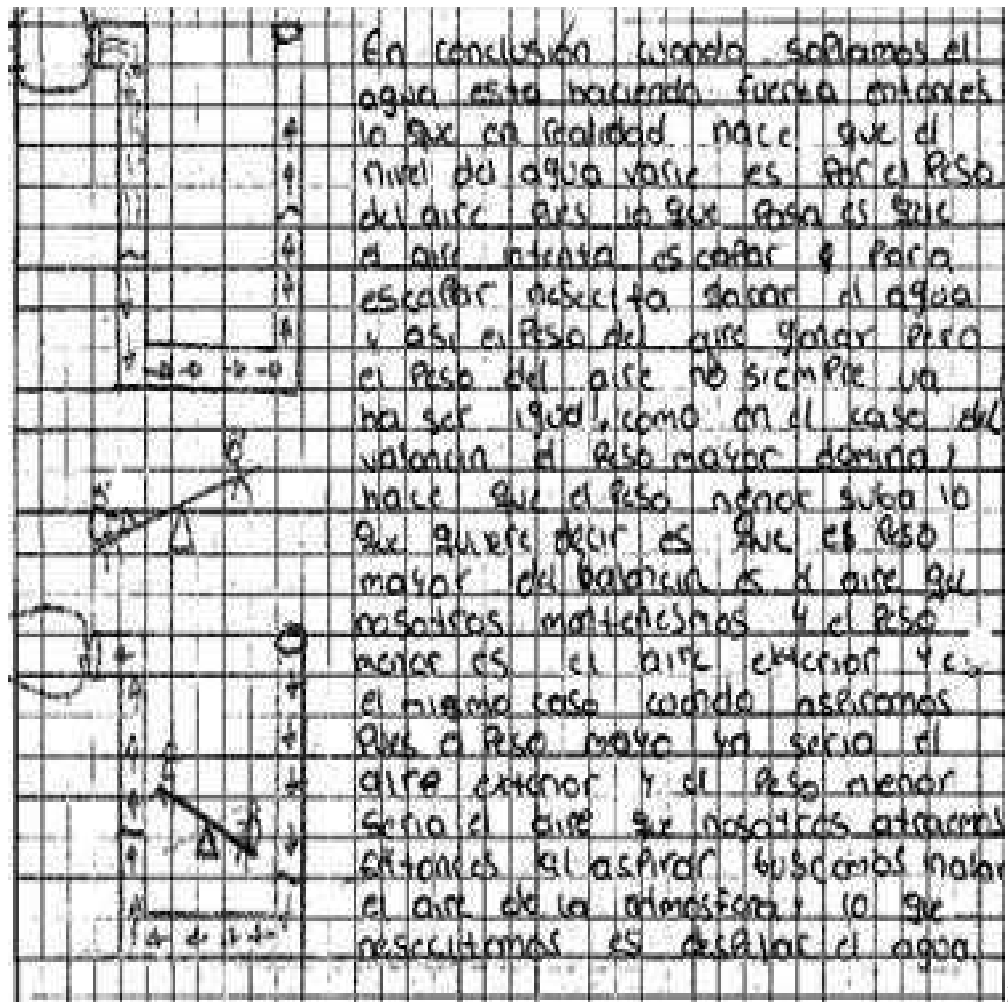 En conclusión cuando soplamos el
agua esta haciendo fuerza entonces
lo que en realidad hace que el
nivel del agua varie es por el peso
del aire pues lo que pasa es que
el aire intenta escapar y para
escapar nesecita sacar el agua
y asi el peso del aire ganar pero
el peso del aire no siempre va
ha ser igual, como en el caso del
valancin el peso mayor domina y
hace que el peso menor suba lo
que quiere decir es que el peso
mayor del balancin es el aire que
nosotros y el peso
menor es el aire exterior y es
el mismo caso cuando aspiramos
pues o peso mayo ya seria el
aire exterior y el peso menor
seria el aire que nosotros atraemos
entonces al aspirar buscamos
el aire de la atmosfera y lo que
nesecitamos es el agua.